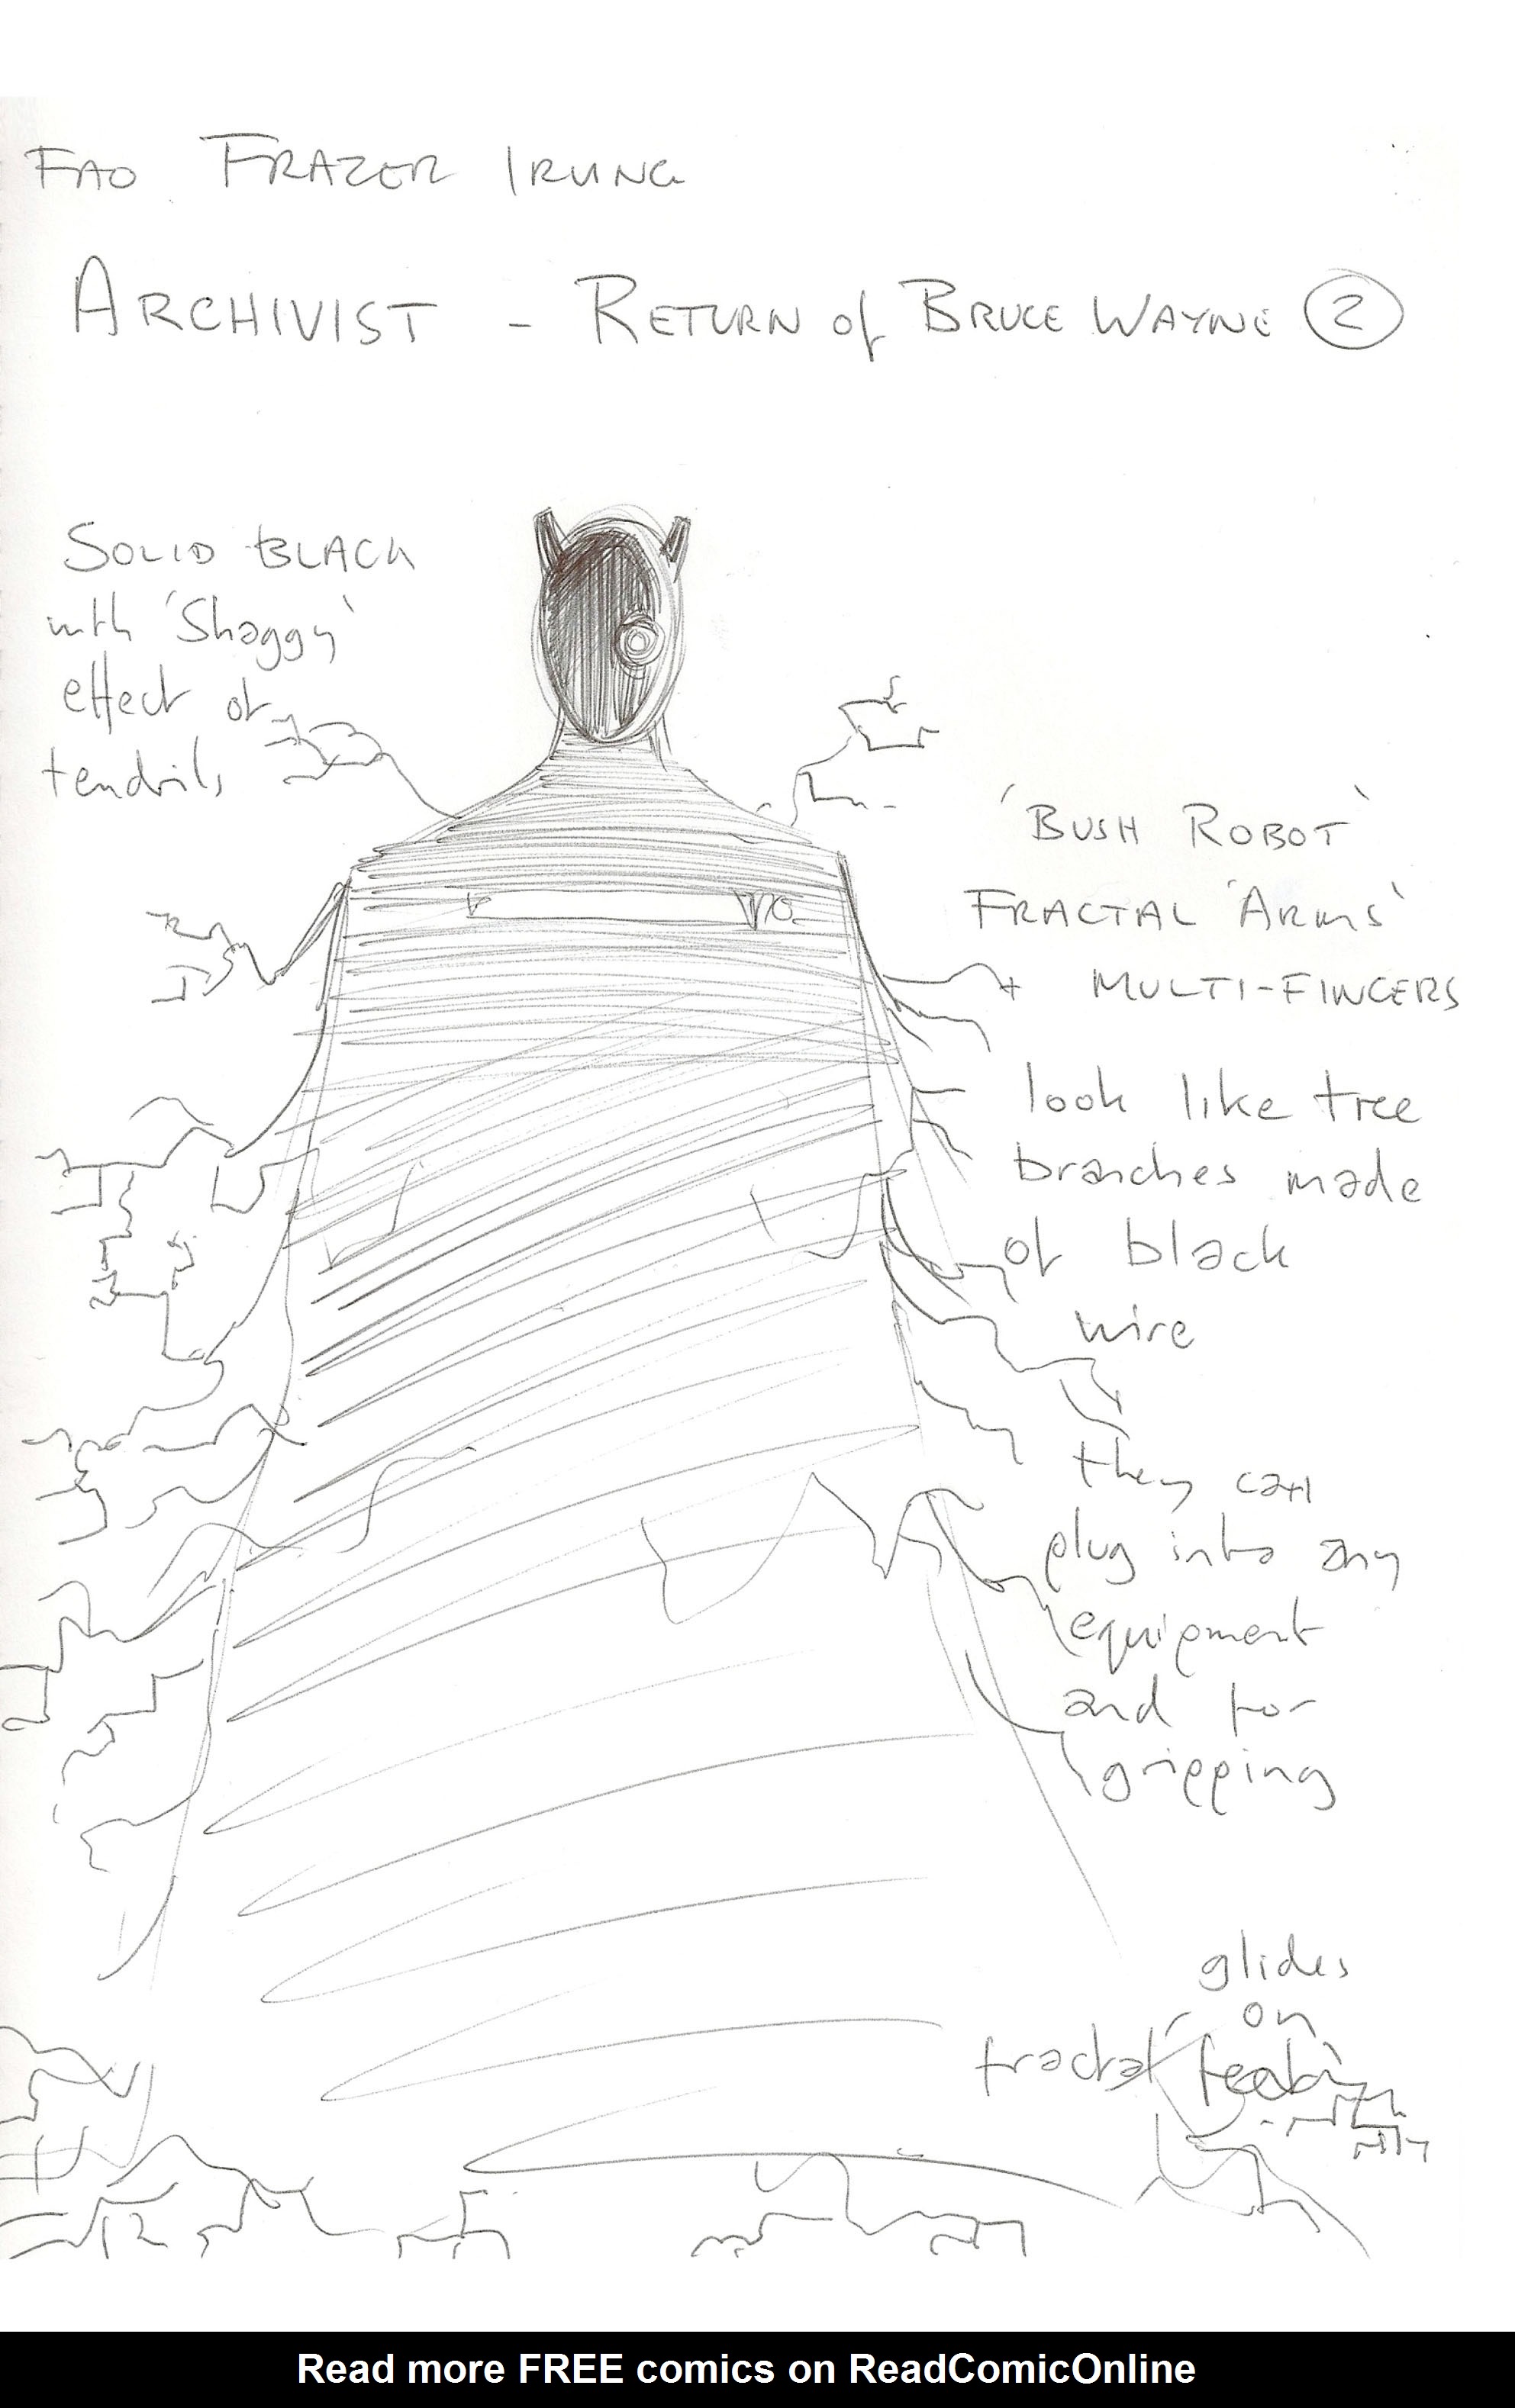 FAO FRAZER IRVING
ARCHIVIST - RETURN of BRUCE WAYNE 2
SOLID BLACK
with 'Shaggy'
effect of
tendrils
'BUSH ROBOT'
FRACTAL 'ARMS'
+ MULTI-FINGERS
look like tree
branches made
of black
wire
they can
plug into any
equipment
and for
gripping
glides
on
fractal 'feet'
NO.
Read more FREE comics on ReadComicOnline